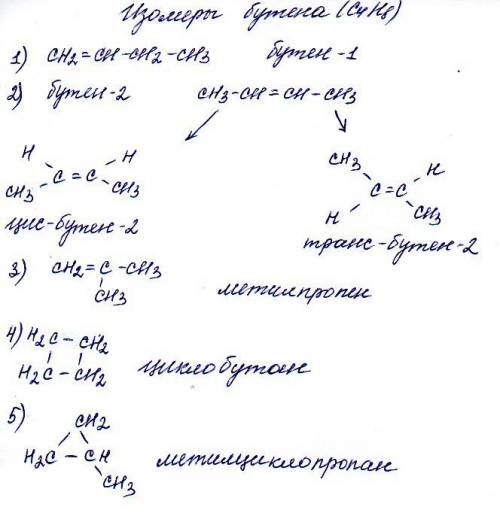 Изомеры бутена (C4H8)
1) CH2=CH-CH2-CH3 бутен-1
2) бутен-2 CH3-CH=CH-CH3
H H
C=C
CH3 CH3
цис-бутен-2
CH3 H
C=C
H CH3
транс-бутен-2
3) CH2=C-CH3
CH3
метилпропен
4) H2C-CH2
H2C-CH2 циклобутан
5) CH2
H2C-CH метилциклопропан
CH3